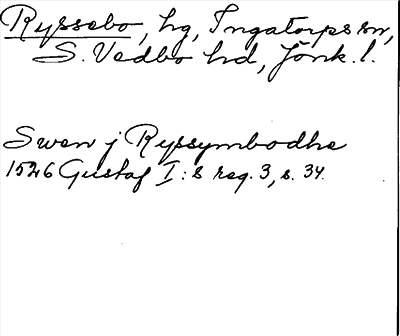 Ryssebo, hg, Ingatorps sn,
S. Vedbo hd, Jönk. l.
Swen j Ryssymbodhe
1526 Gustaf I:s reg. 3, s. 34.